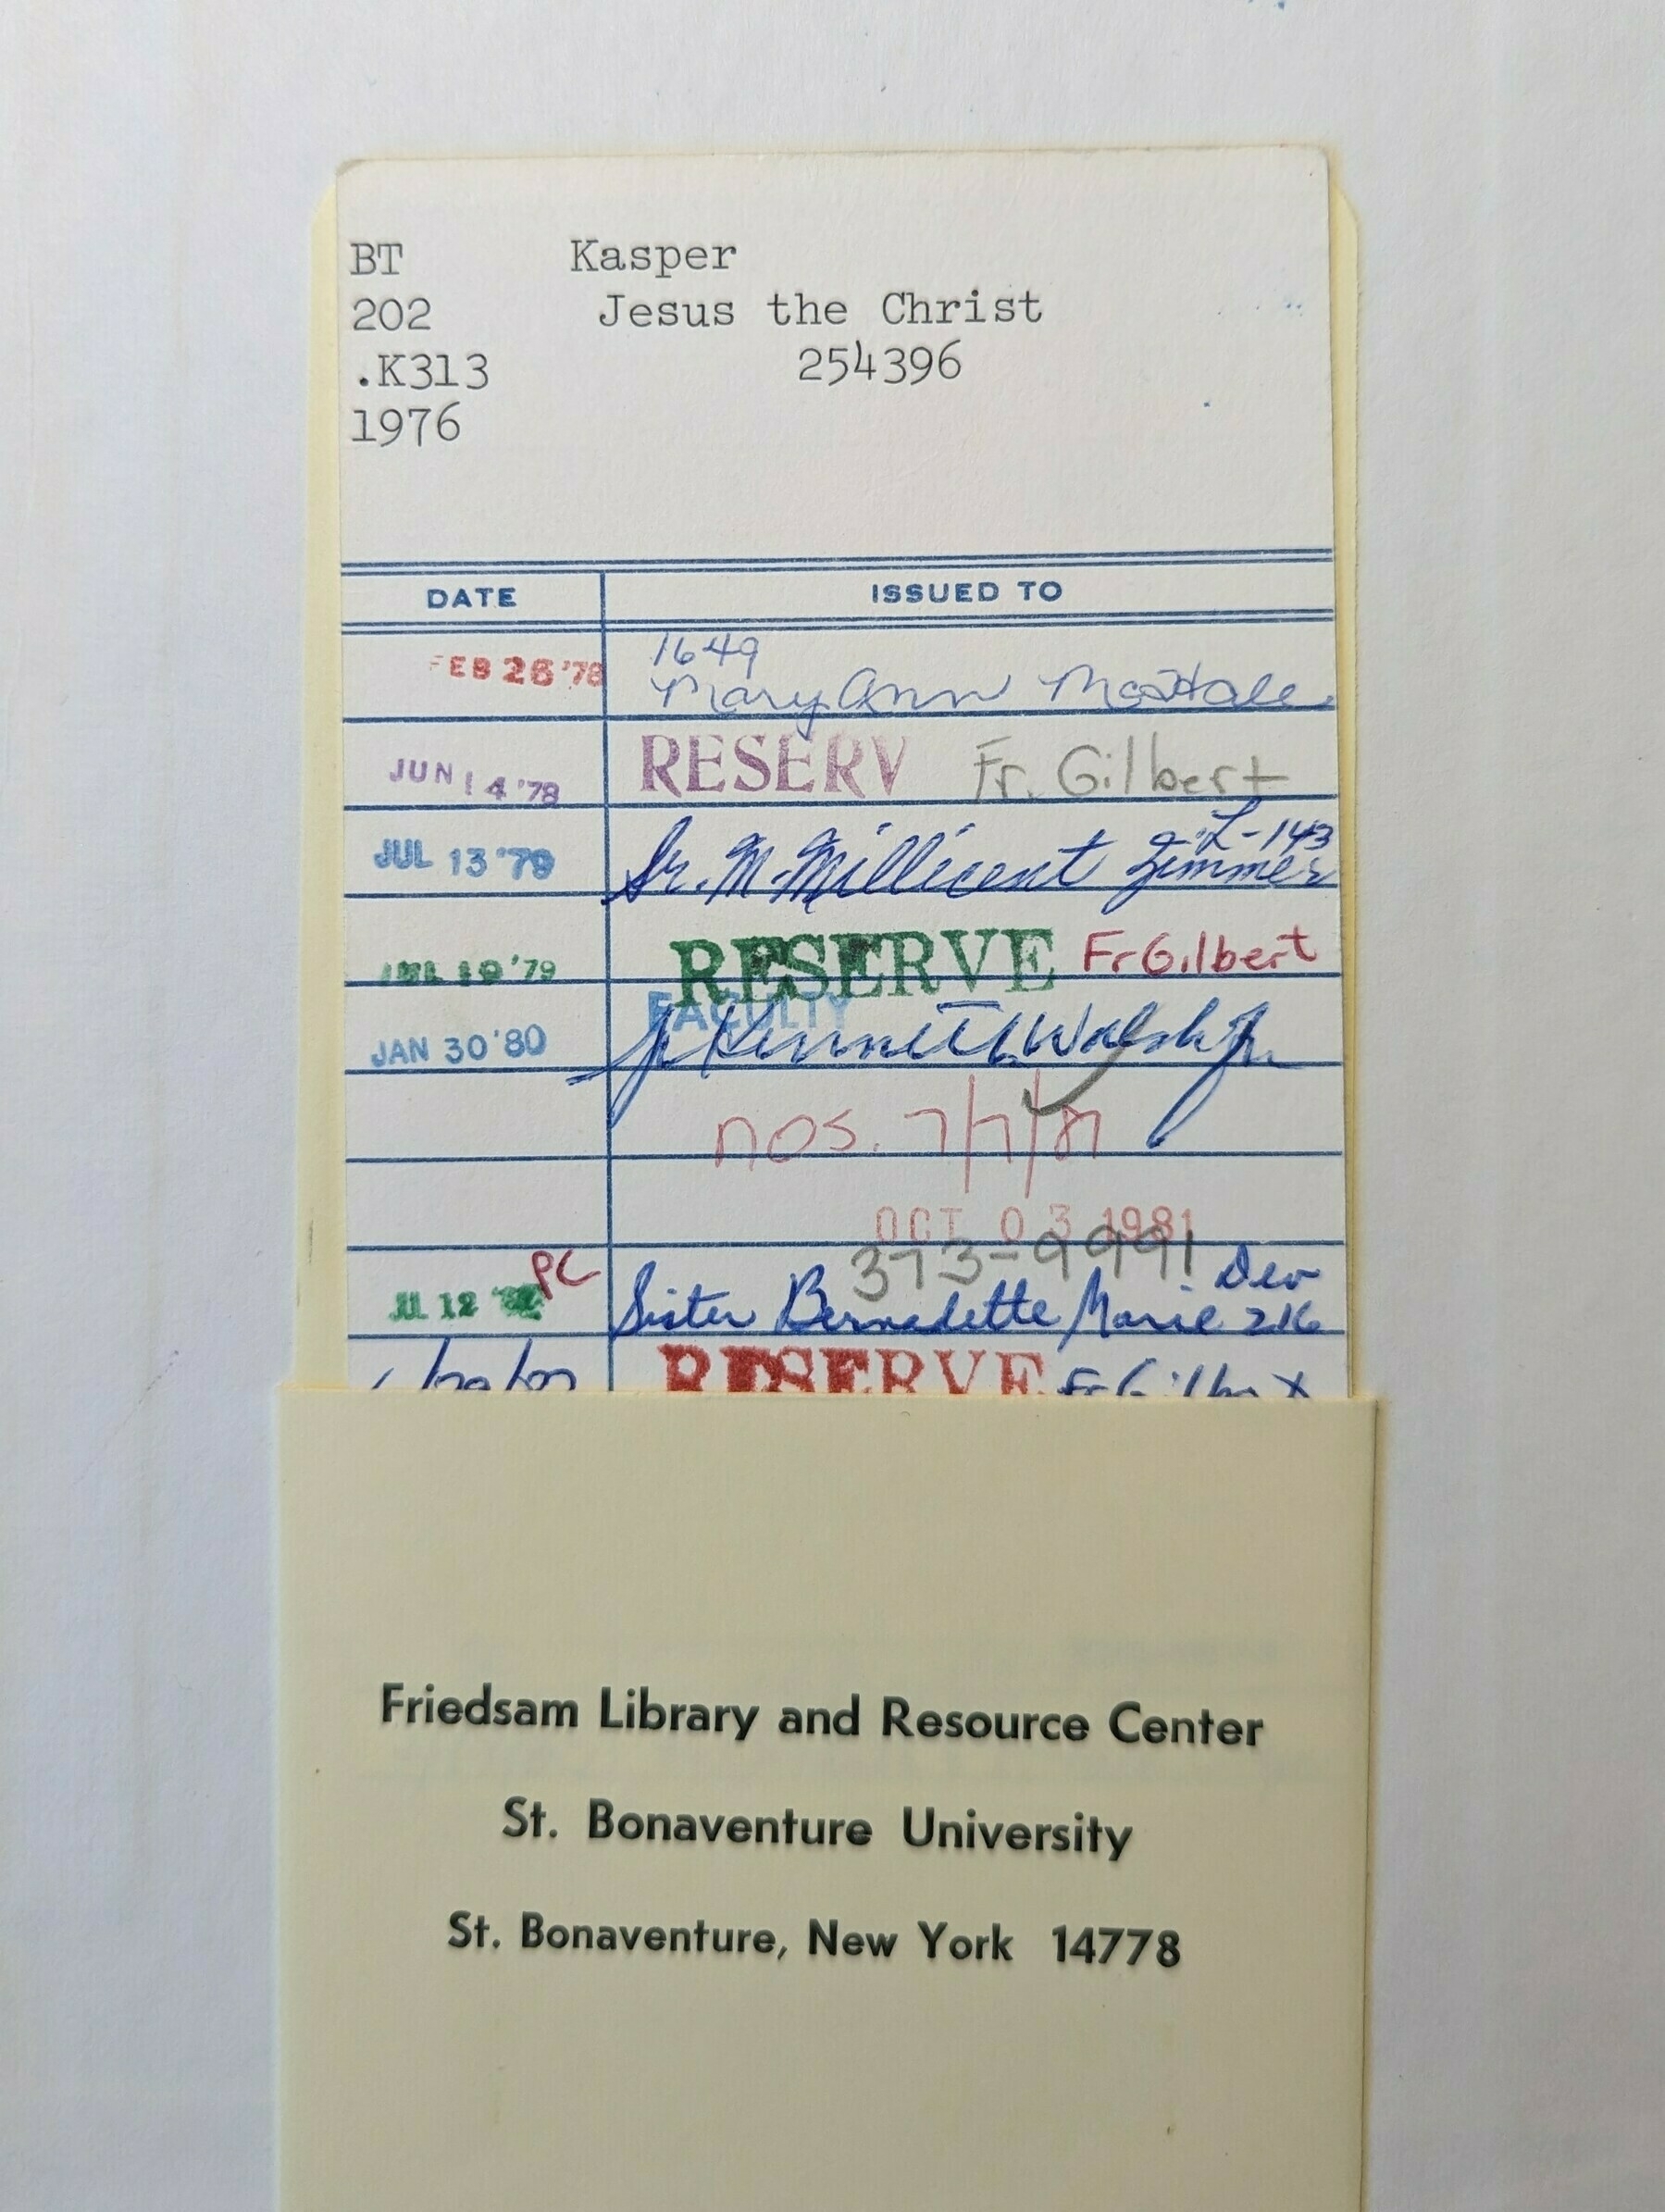 BT Kasper
202 Jesus the Christ
.K313 254396
1976
DATE ISSUED TO
1649
FEB 26 '78 Mary Ann McHale
JUN 14 '78 RESERV Fr. Gilbert
L-143
JUL 13 '79 Sr. M. Millicent Zimmer
19 '79 RESERVE Fr Gilbert
FACULTY
JAN 30 '80 Kenneth Walsh Jr.
nos. 7/7/81
OCT 03 1981
373-9991
PC Dev
JUL 12 Sister Bernadette Marie 216
RESERVE Fr Gilbert
Friedsam Library and Resource Center
St. Bonaventure University
St. Bonaventure, New York 14778